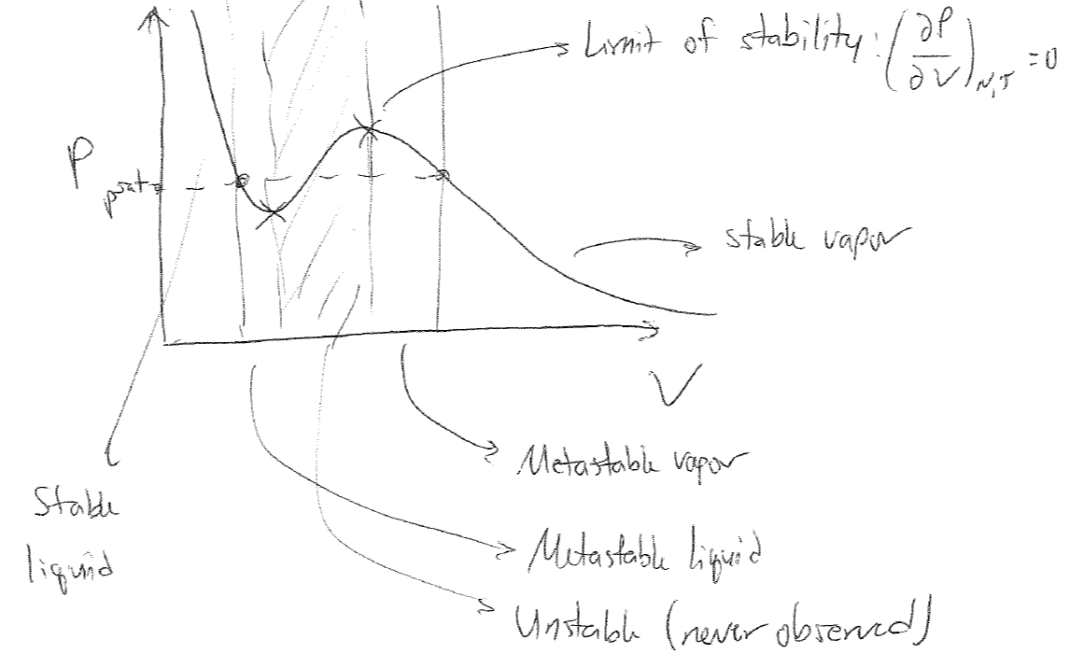 Limit of stability: (∂P/∂V)_{N,T} = 0
P
psat
stable vapor
V
Metastable vapor
Stable
liquid
Metastable liquid
Unstable (never observed)